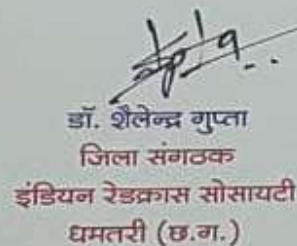 डॉ. शैलेन्द्र गुप्ता
जिला संगठक
इंडियन रेडक्रास सोसायटी
धमतरी (छ.ग.)